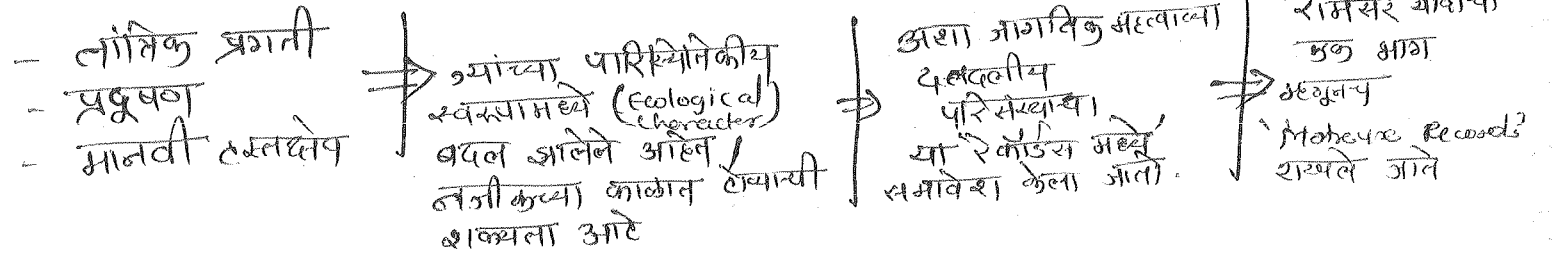 - तांत्रिक प्रगती
- प्रदूषण
- मानवी हस्तक्षेप
⇒ ज्यांच्या पारिस्थितिकीय
स्वरूपामध्ये (Ecological
Character)
बदल झालेले आहेत /
नजीकच्या काळात होण्याची
शक्यता आहे
⇒ अशा जागतिक महत्वाच्या
दलदलीय
परिसंस्थाचा
या रेकॉर्डस मध्ये
समावेश केला जातो.
रामसर यादीचा
एक भाग
⇒ म्हणूनच
'Montreux Records'
राखले जाते